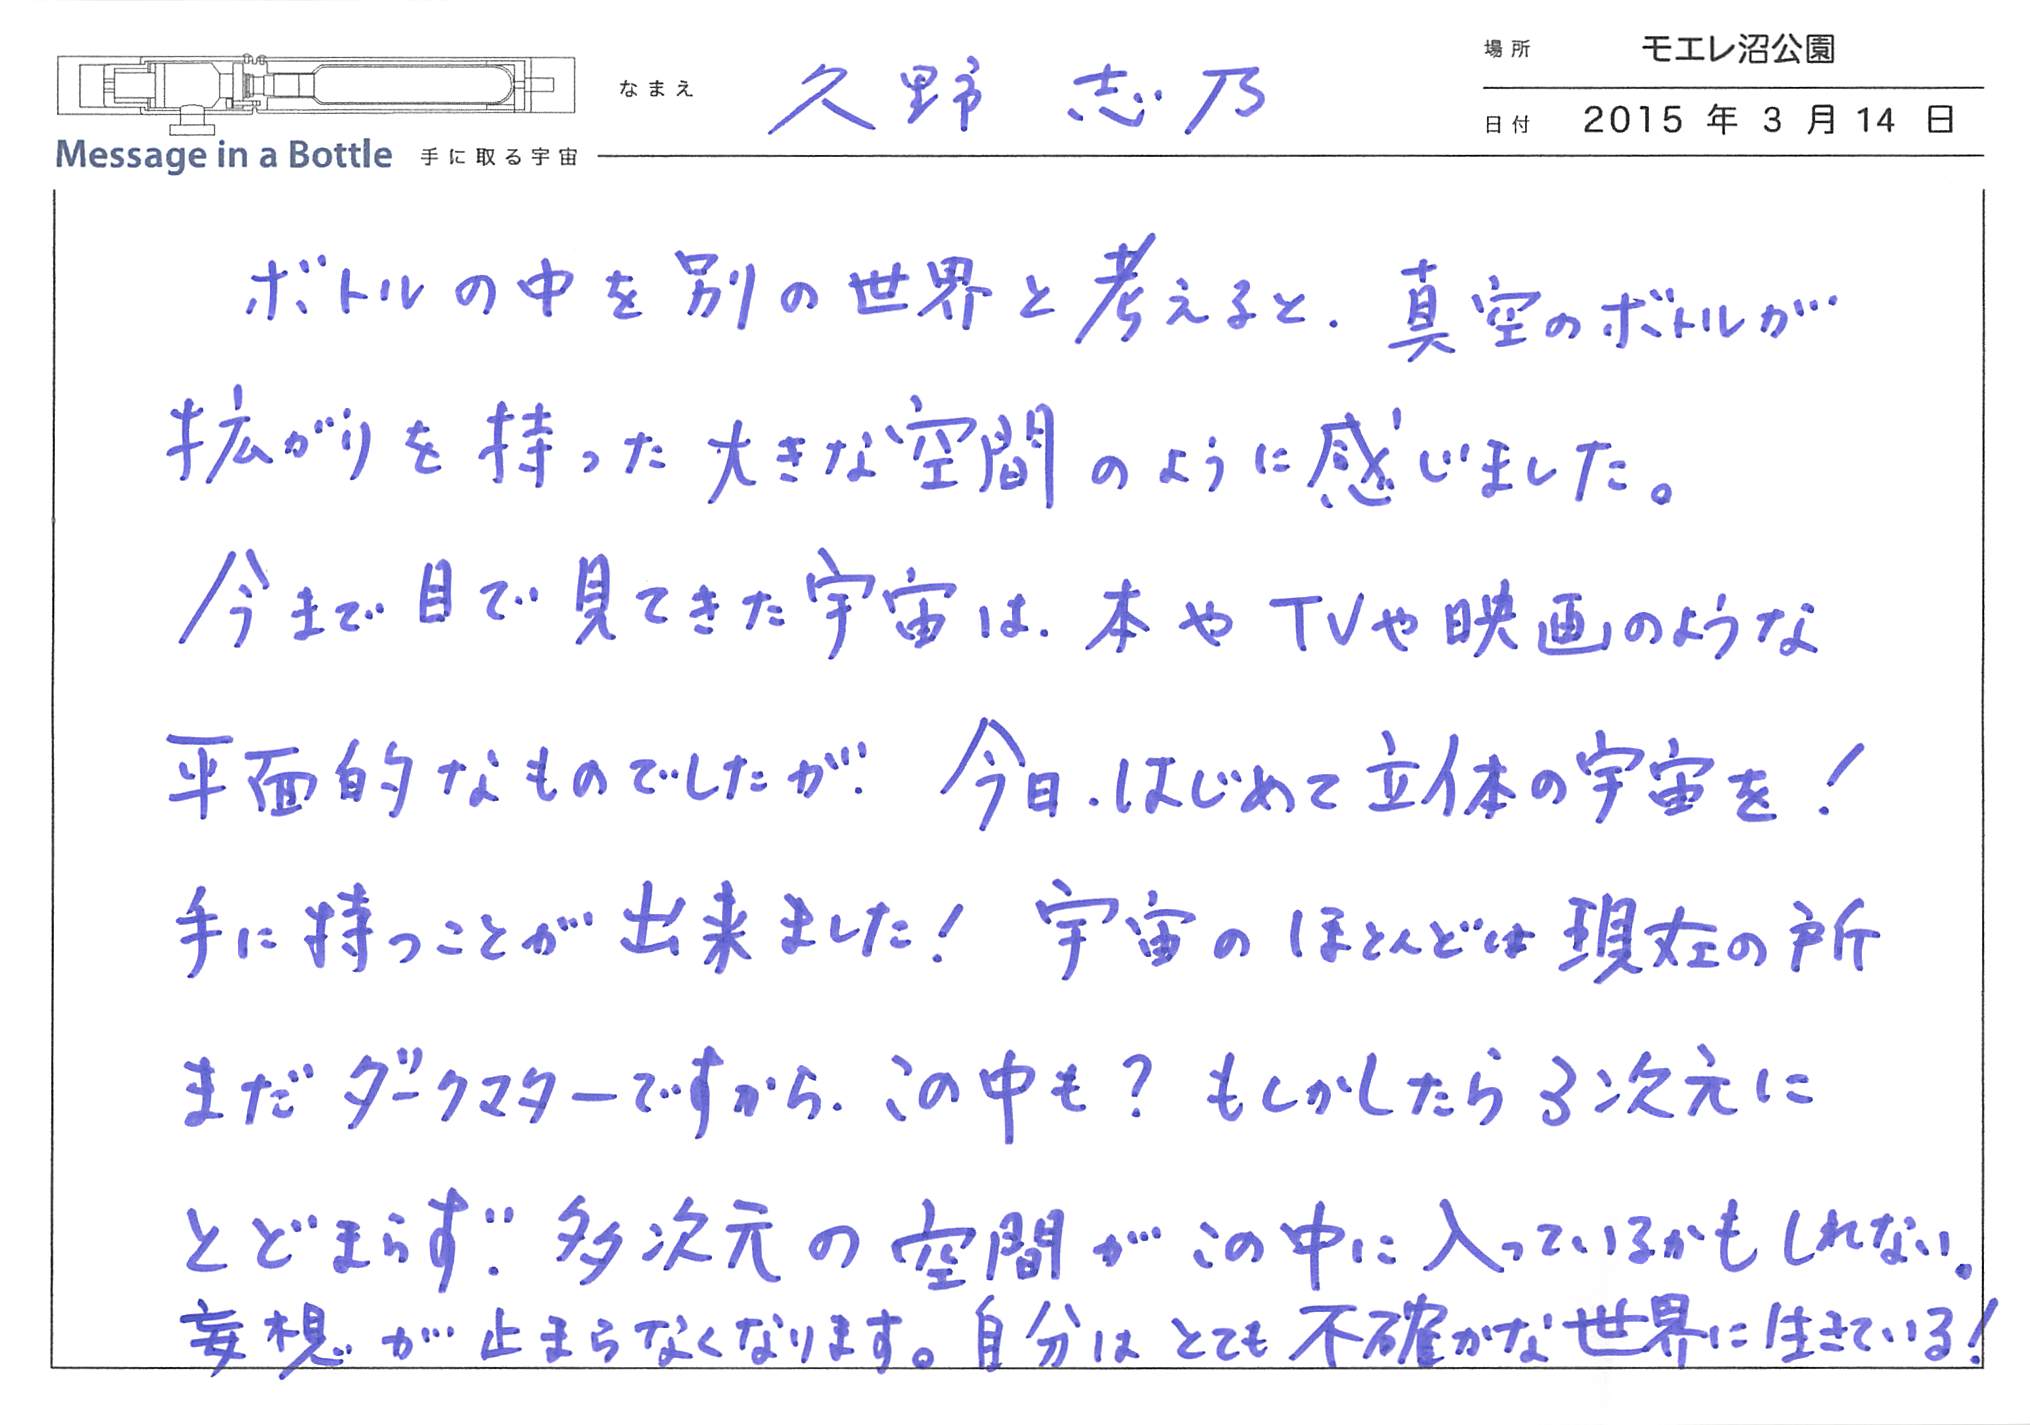 なまえ 久野 志乃
場所 モエレ沼公園
日付 2015 年 3 月 14 日
Message in a Bottle 手に取る宇宙
ボトルの中を別の世界と考えると、真空のボトルが
拡がりを持った大きな空間のように感じました。
今まで目で見てきた宇宙は、本やTVや映画のような
平面的なものでしたが、今日、はじめて立体の宇宙を!
手に持つことが出来ました! 宇宙のほとんどは現在の所
まだダークマターですから、この中も? もしかしたら3次元に
とどまらず、多次元の空間がこの中に入っているかもしれない。
妄想が止まらなくなります。自分はとても不確かな世界に生きている!